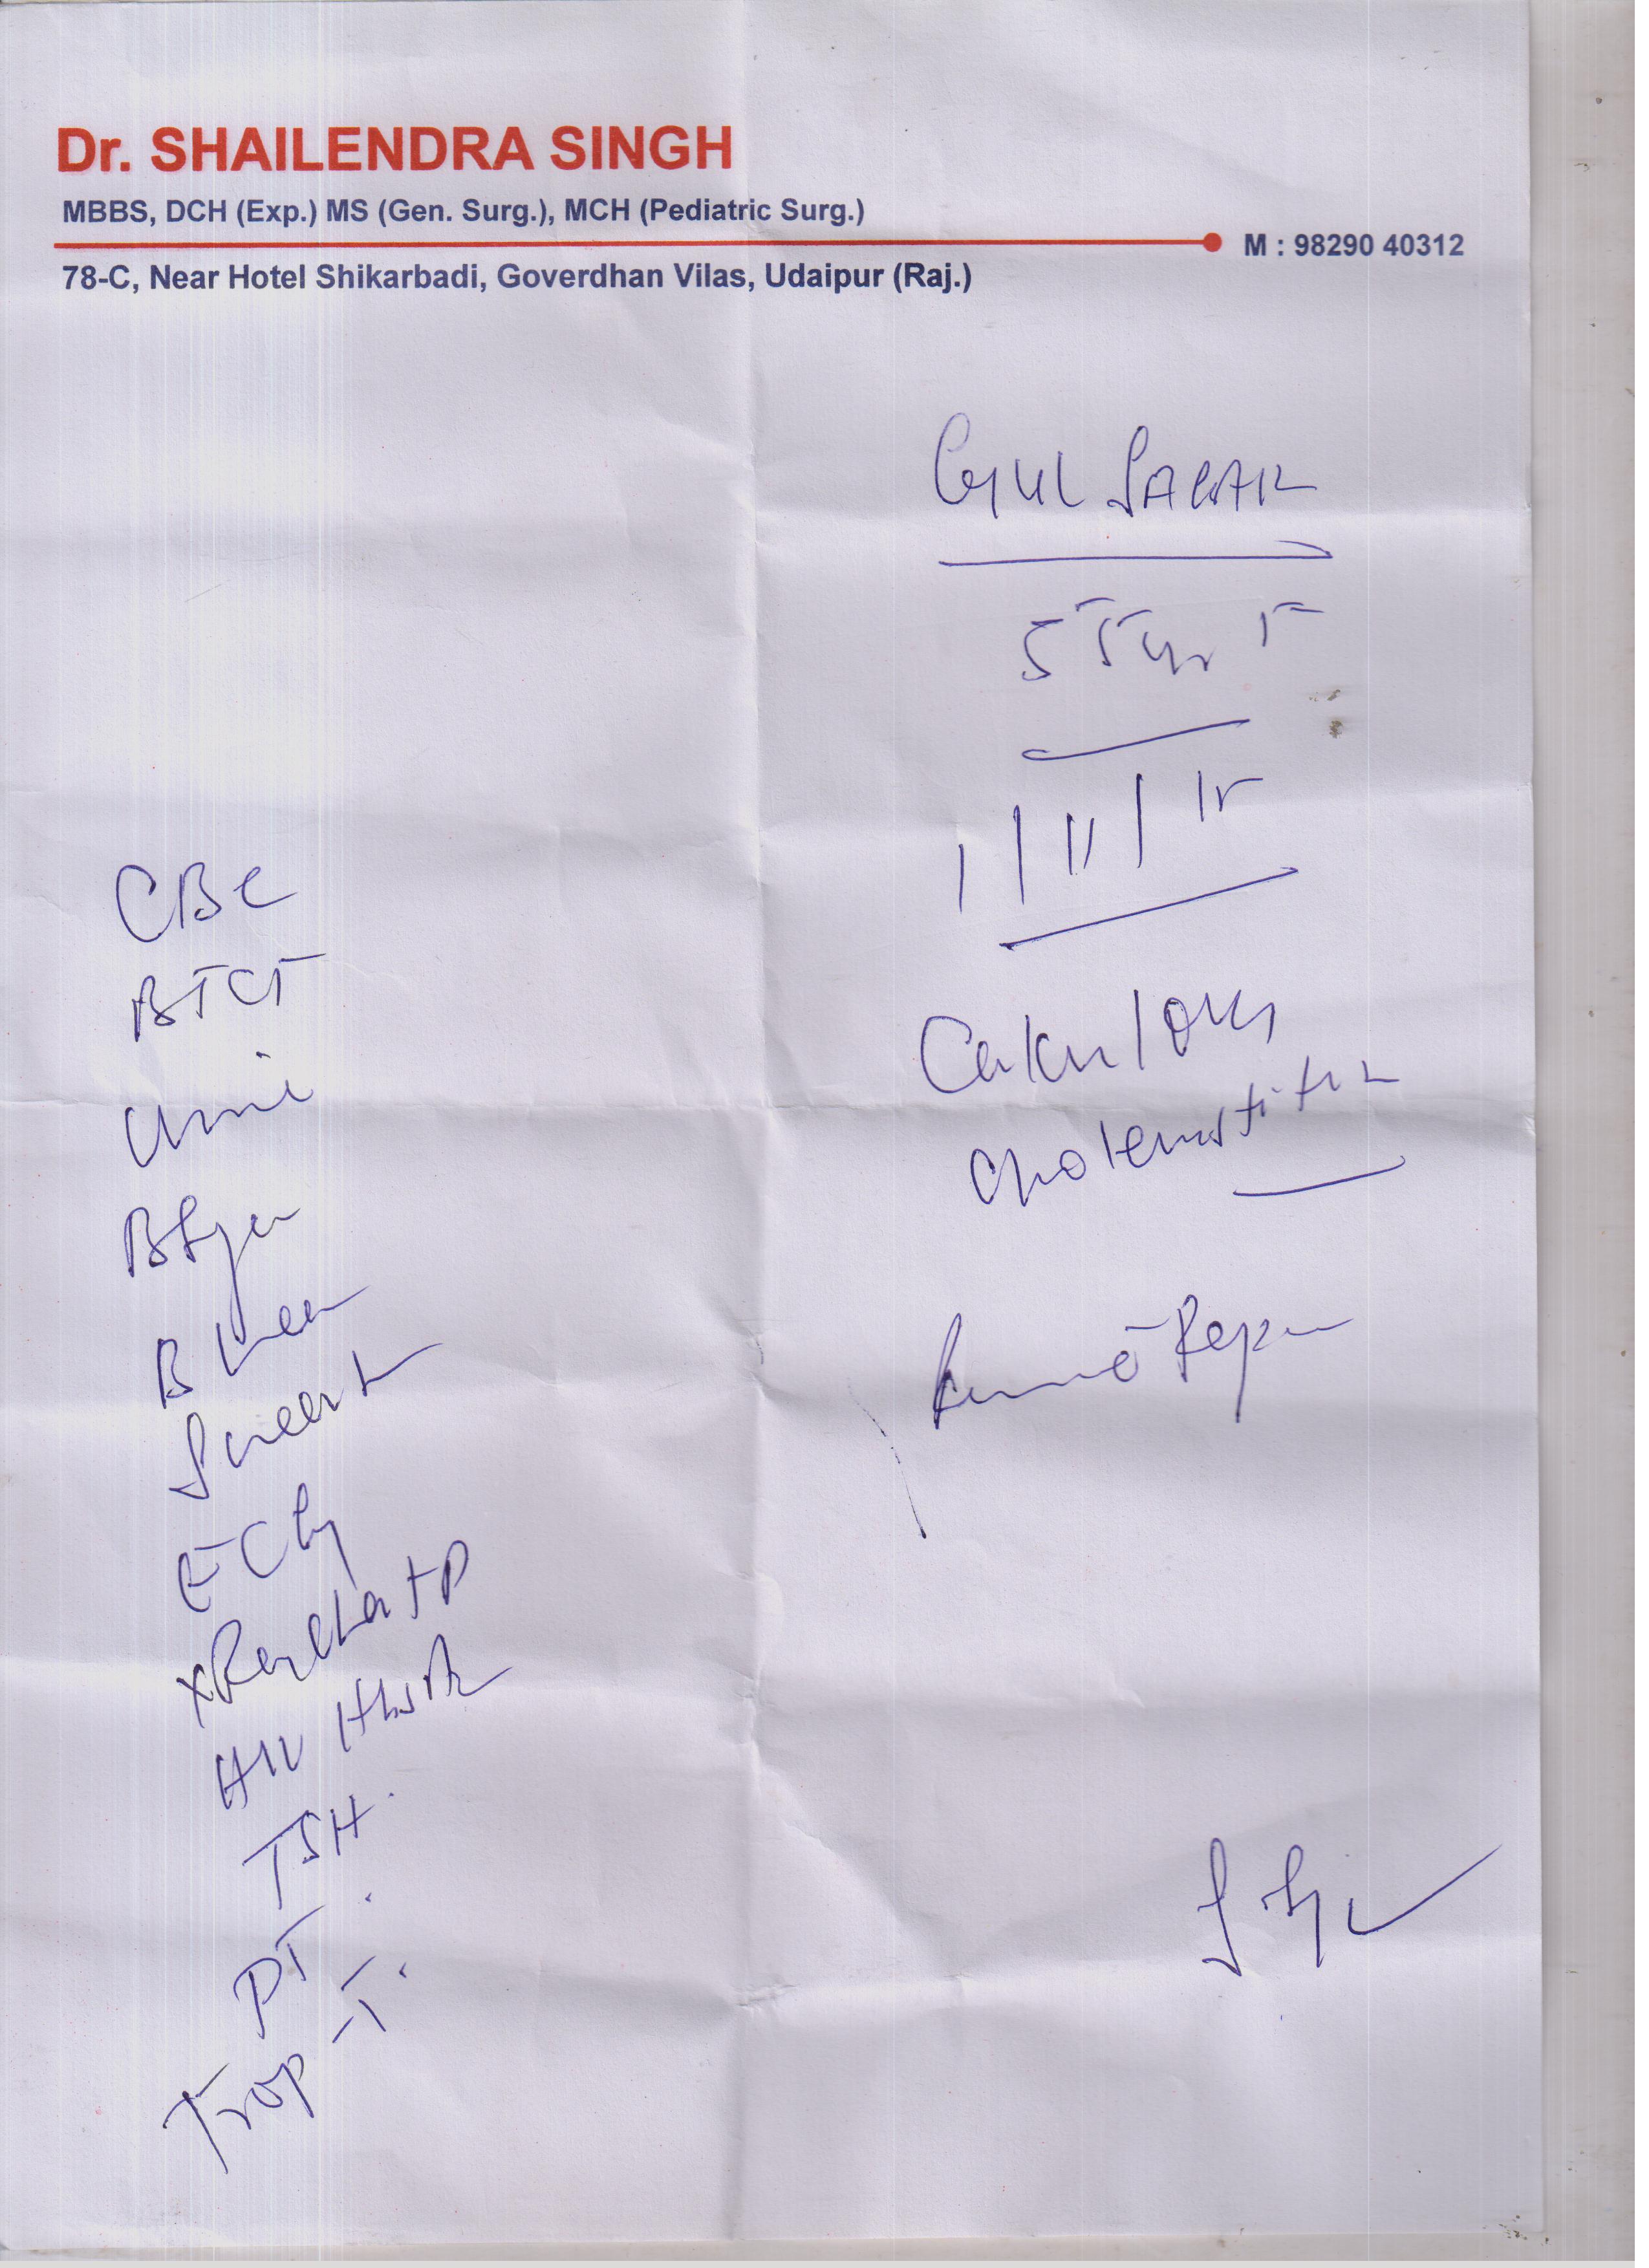 Dr. SHAILENDRA SINGH
MBBS, DCH (Exp.) MS (Gen. Surg.), MCH (Pediatric Surg.)
M : 98290 40312
78-C, Near Hotel Shikarbadi, Goverdhan Vilas, Udaipur (Raj.)
Gul
55 yr F
1/11/15
Calculous
Cholecystitis
CBC
BTCT
Urine
B Sugar
B Urea
S creat
ECG
X Ray Chest PA
HIV HbsAg
TSH.
PT.
Trop-T.